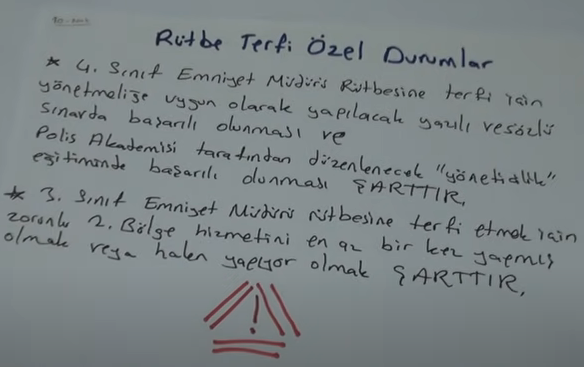 Rütbe Terfi Özel Durumlar
* 4. Sınıf Emniyet Müdürü Rütbesine terfi için
yönetmeliğe uygun olarak yapılacak yazılı ve sözlü
sınavda başarılı olunması ve
Polis Akademisi tarafından düzenlenecek "yöneticilik"
eğitiminde başarılı olunması ŞARTTIR.
* 3. Sınıf Emniyet Müdürü rütbesine terfi etmek için
zorunlu 2. Bölge hizmetini en az bir kez yapmış
olmak veya halen yapıyor olmak ŞARTTIR.
!